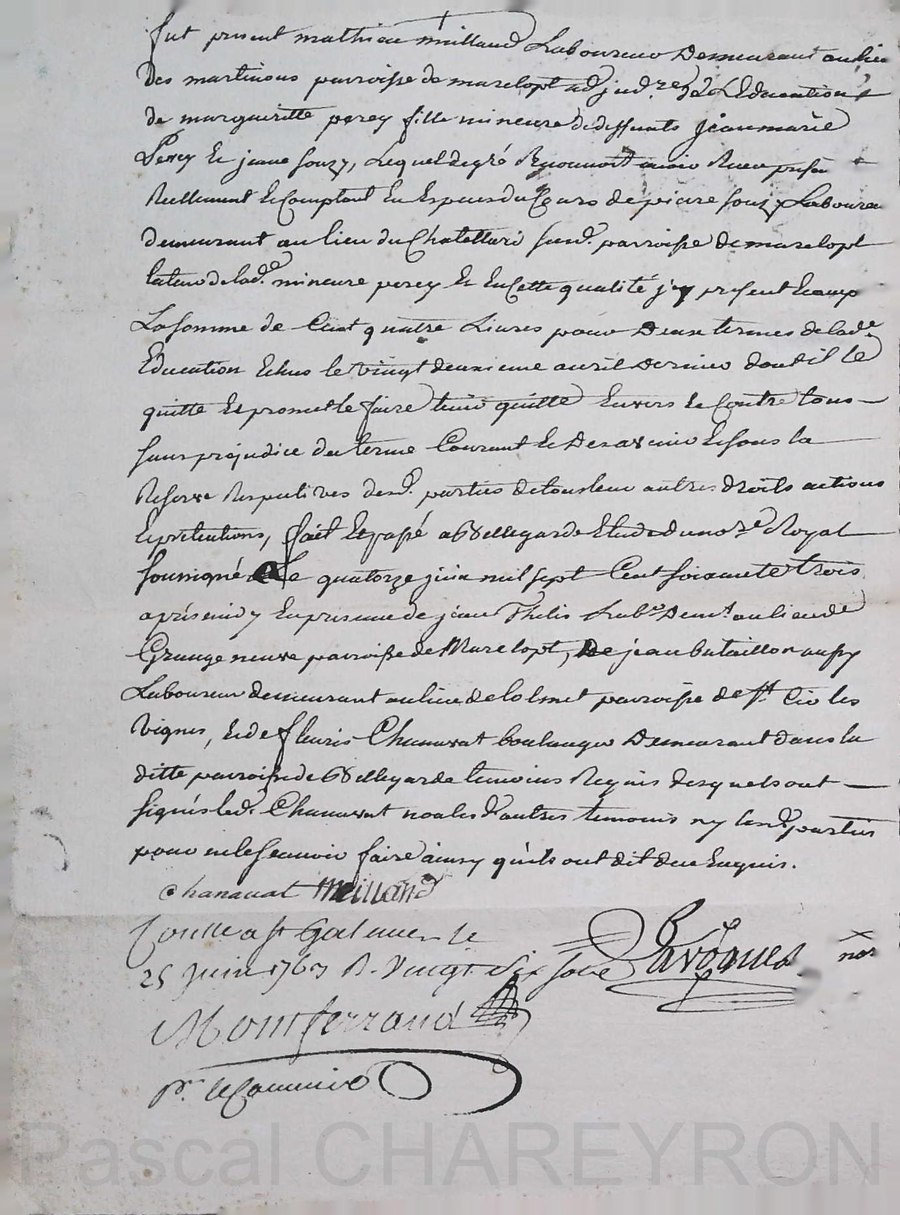 fut present mathieu meilland Laboureur Demeurant au lieu
Des martinous parroisse de marclopt adjud.re de L'Education
de margueritte perey fille mineure de deffunts jean marie
Perey et jeane souzy, Lequel de gré Reconnoit avoir Receu presen
Reellement et Comptant En Especes du Cours de pierre souzy Laboureur
demeurant au lieu du Chatellard susd. parroisse de marclopt
tuteur de lad.e mineure perey Et En Cette qualité jcy present
La somme de Cent quatre Livres pour Deux termes de lad.e
Education Echus le vingt deuxieme avril Dernier dont il le
quitte Et promet le faire tenir quitte Envers Et Contre tous
sans prejudice du terme Courant Et Des avenir Et sous la
Reserve Respectives desd. parties de tous leur autres droits actions
Et pretentions, fait Et passé a Bellegarde Etude du no.re Royal
soussigné Le quatorze juin mil sept Cent soixante trois
après midy En presence de jean Thelis Lab.r Dem.t au lieu de
Grange neuve parroisse de Marclopt, De jean bataillon aussy
Laboureur demeurant au lieu de parroisse de St. Cir les
vignes, Et de fleuris Chanavat boulanger Demeurant dans la
ditte parroisse de Bellegarde temoins Requis Desquels ont
signés led. Chanavat non les d. autres temoins ny lesd. parties
pour ne le scavoir faire ainsy qu'ils ont dit de ce Enquis.
Chanavat Meilland
Conlle a St Galmier le
25 juin 1763 R. vingt six sols Javogues nore
Montferrand
Pr. le Commis
Pascal CHAREYRON